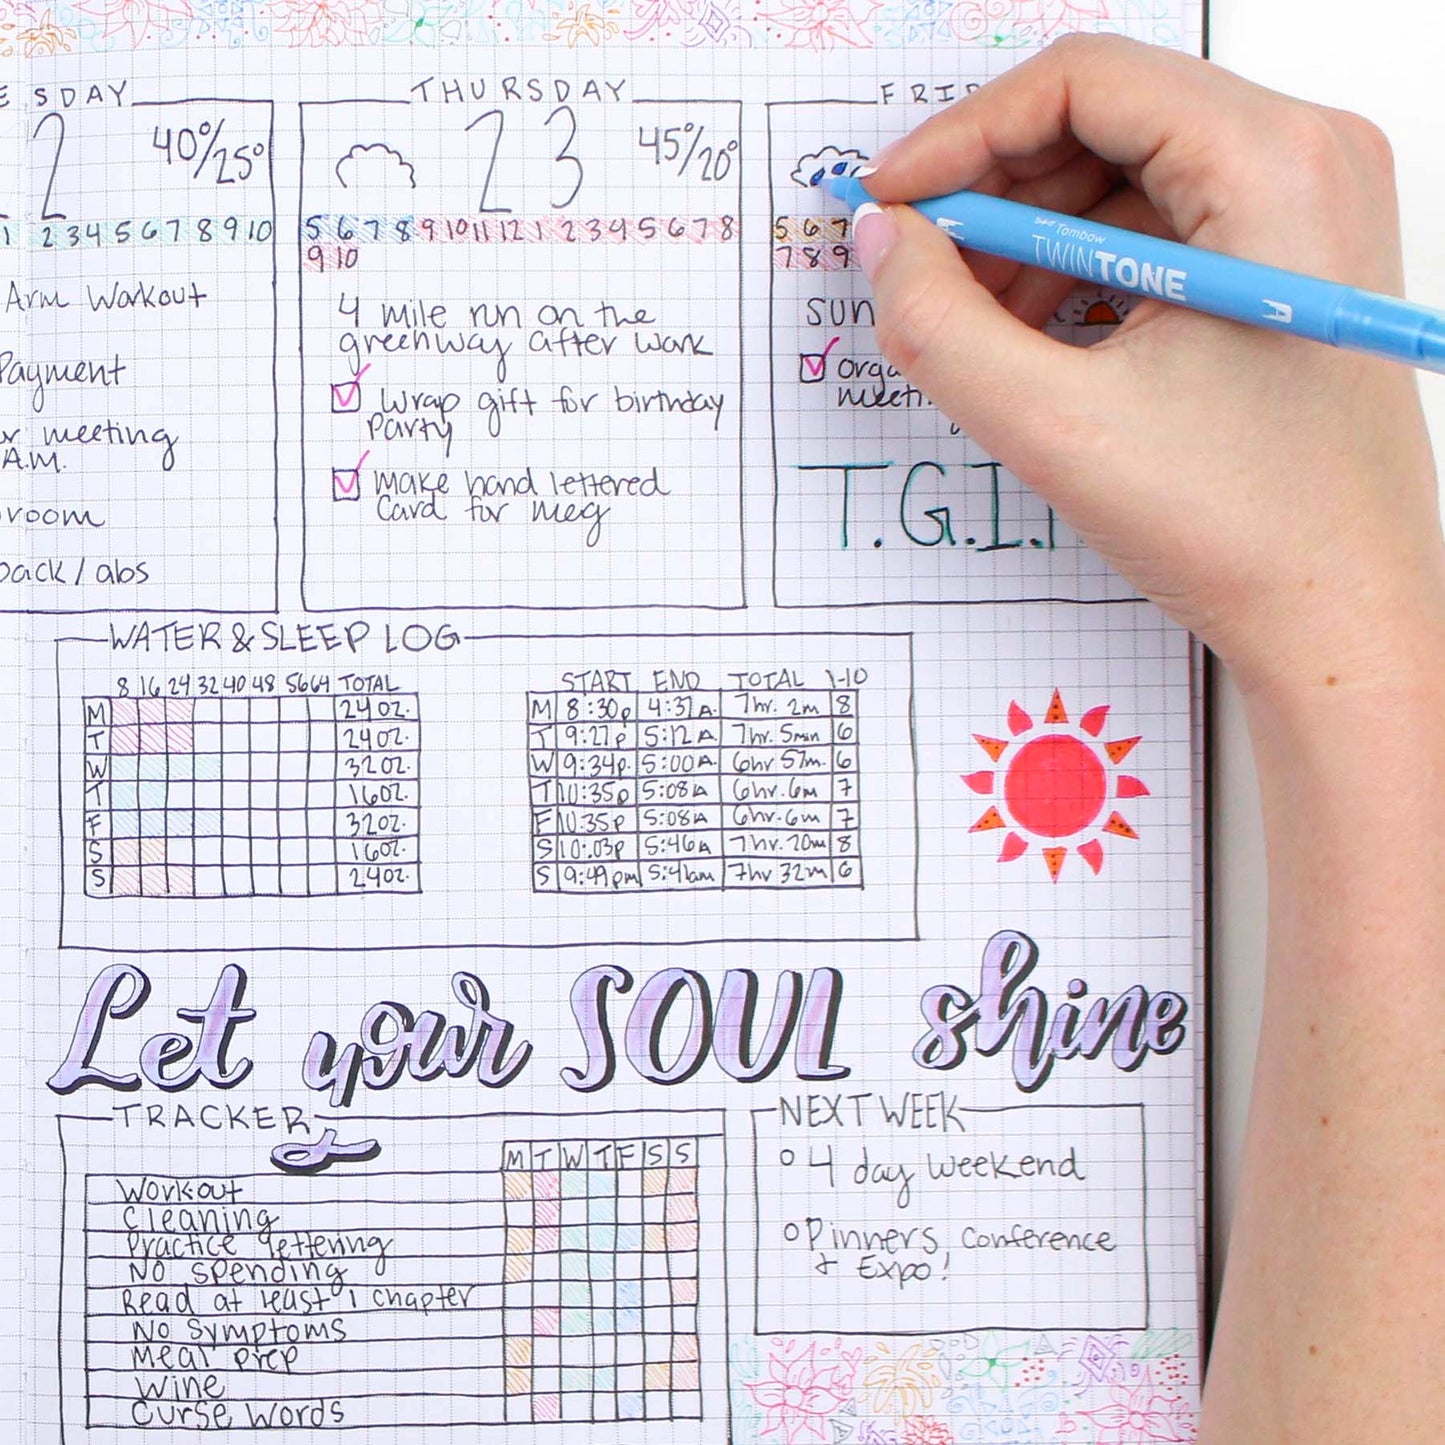 SDAY
2
40°/25°
1 2 3 4 5 6 7 8 9 10
Arm Workout
Payment
meeting
A.M.
room
back/abs
THURSDAY
23
45°/20°
5 6 7 8 9 10 11 12 1 2 3 4 5 6 7 8
9 10
4 mile run on the
greenway after work
Wrap gift for birthday
Party
Make hand lettered
Card for Meg
FRI
5 6 7
7 8 9
SUN
T.G.I.
Tombow
TWINTONE
WATER & SLEEP LOG
8 16 24 32 40 48 56 64 TOTAL
M 24oz.
T 24oz.
W 32oz.
T 16oz.
F 32oz.
S 16oz.
S 24oz.
START END TOTAL 1-10
M 8:30p 4:37A. 7hr. 2m 8
T 9:27p 5:12A 7hr. 5min 6
W 9:34p. 5:00A. 6hr 57m. 6
T 10:35p 5:08A 6hr. 6m 7
F 10:35p 5:08A 6hr. 6m 7
S 10:03p 5:46A 7hr. 20m 8
S 9:49pm 5:41am 7hr 32m 6
Let your SOUL shine
TRACKER
M T W T F S S
Workout
Cleaning
Practice lettering
No spending
Read at least 1 chapter
No Symptoms
Meal prep
Wine
Curse Words
NEXT WEEK
4 day weekend
Pinners Conference
+ Expo!